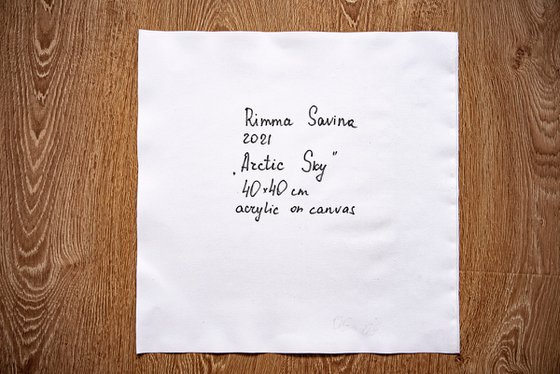 Rimma Savina
2021
„Arctic Sky"
40×40 cm
acrylic on canvas